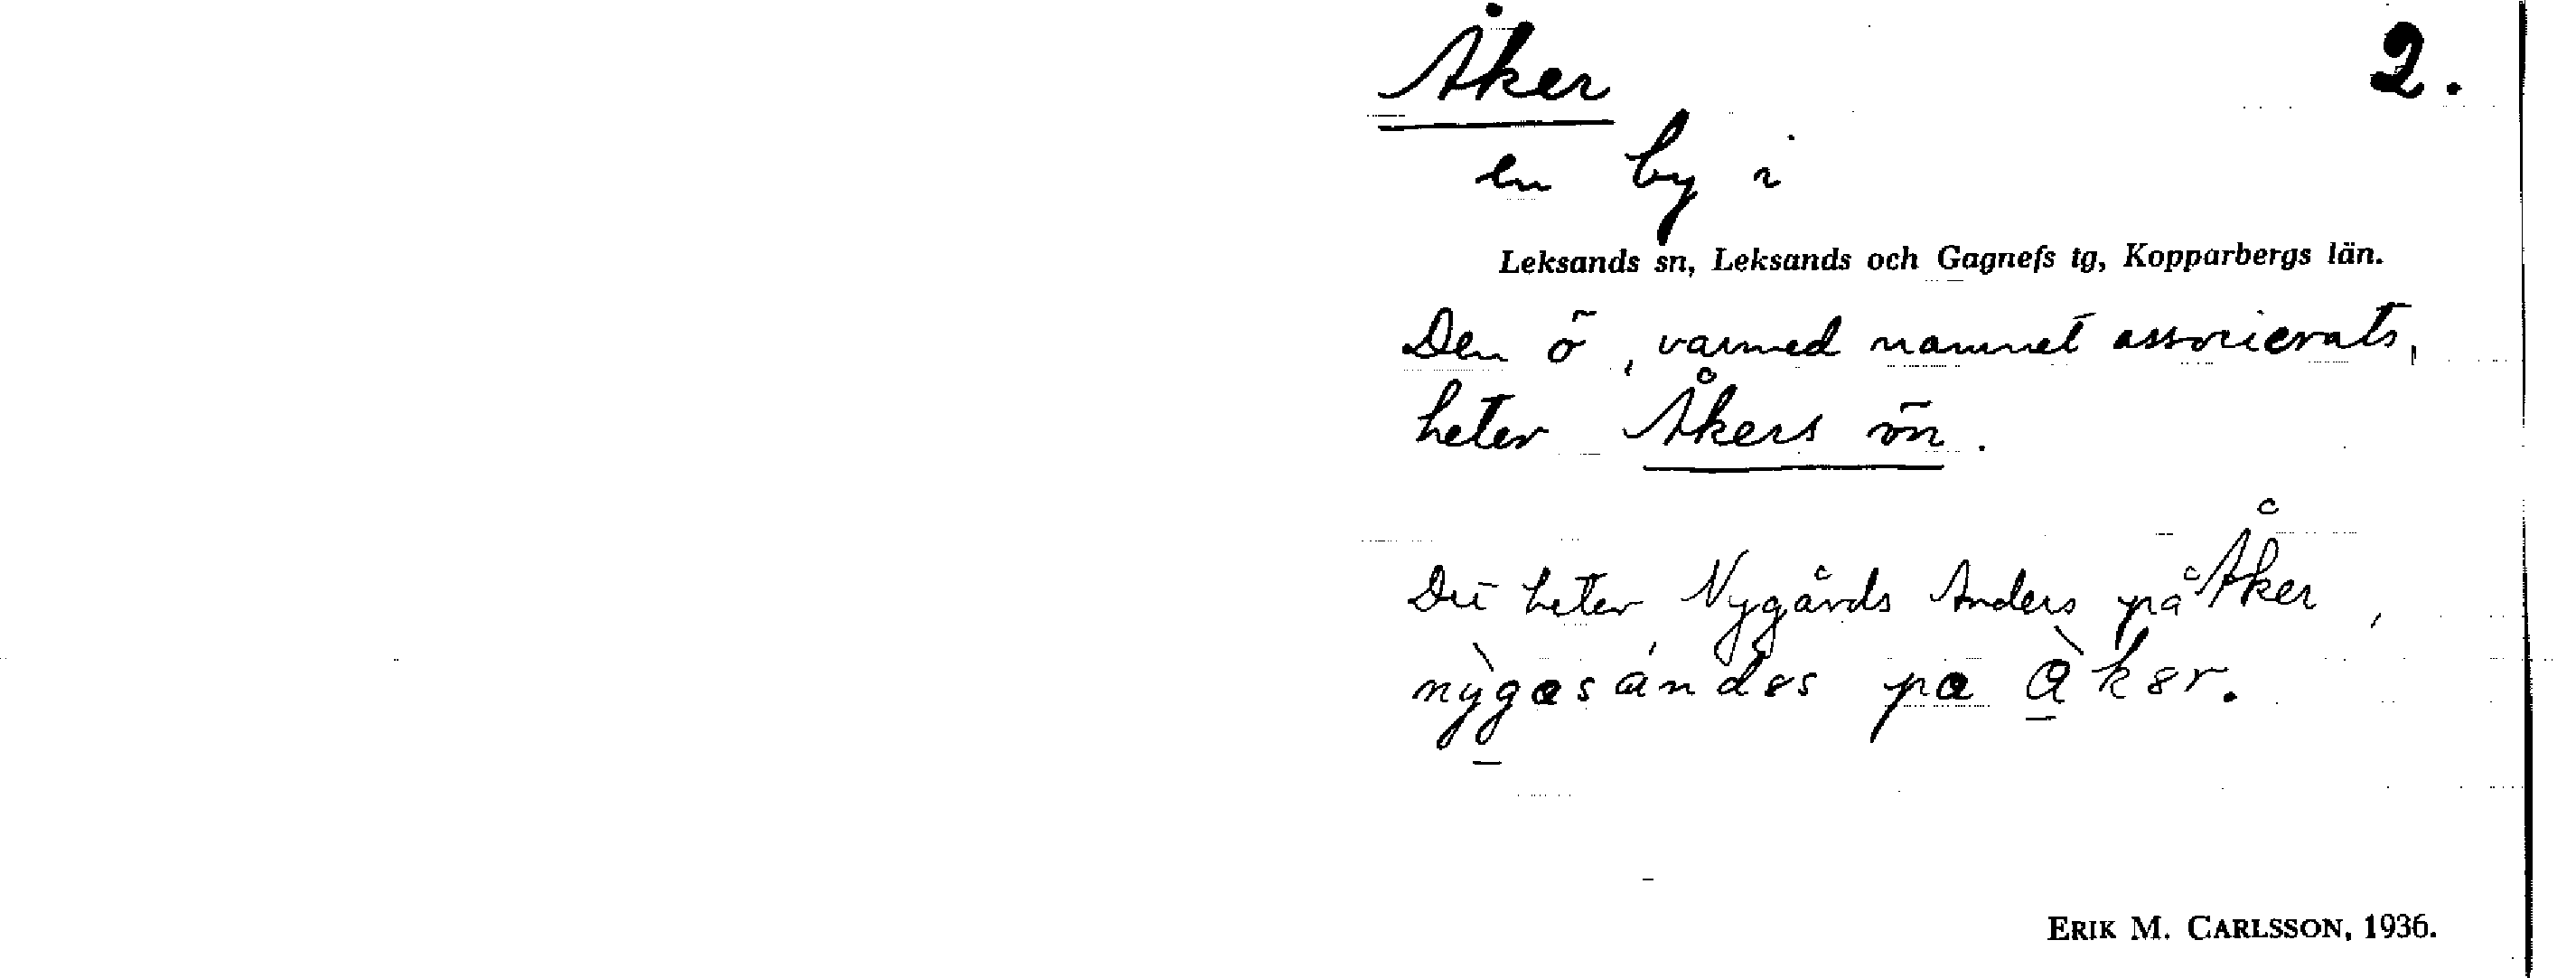 Åker 2.
en by i
Leksands sn, Leksands och Gagnefs tg, Kopparbergs län.
Den ö, varmed namnet associerats,
heter Åkers ön.
Det heter Nygårds Anders på Åker,
på
ERIK M. CARLSSON, 1936.